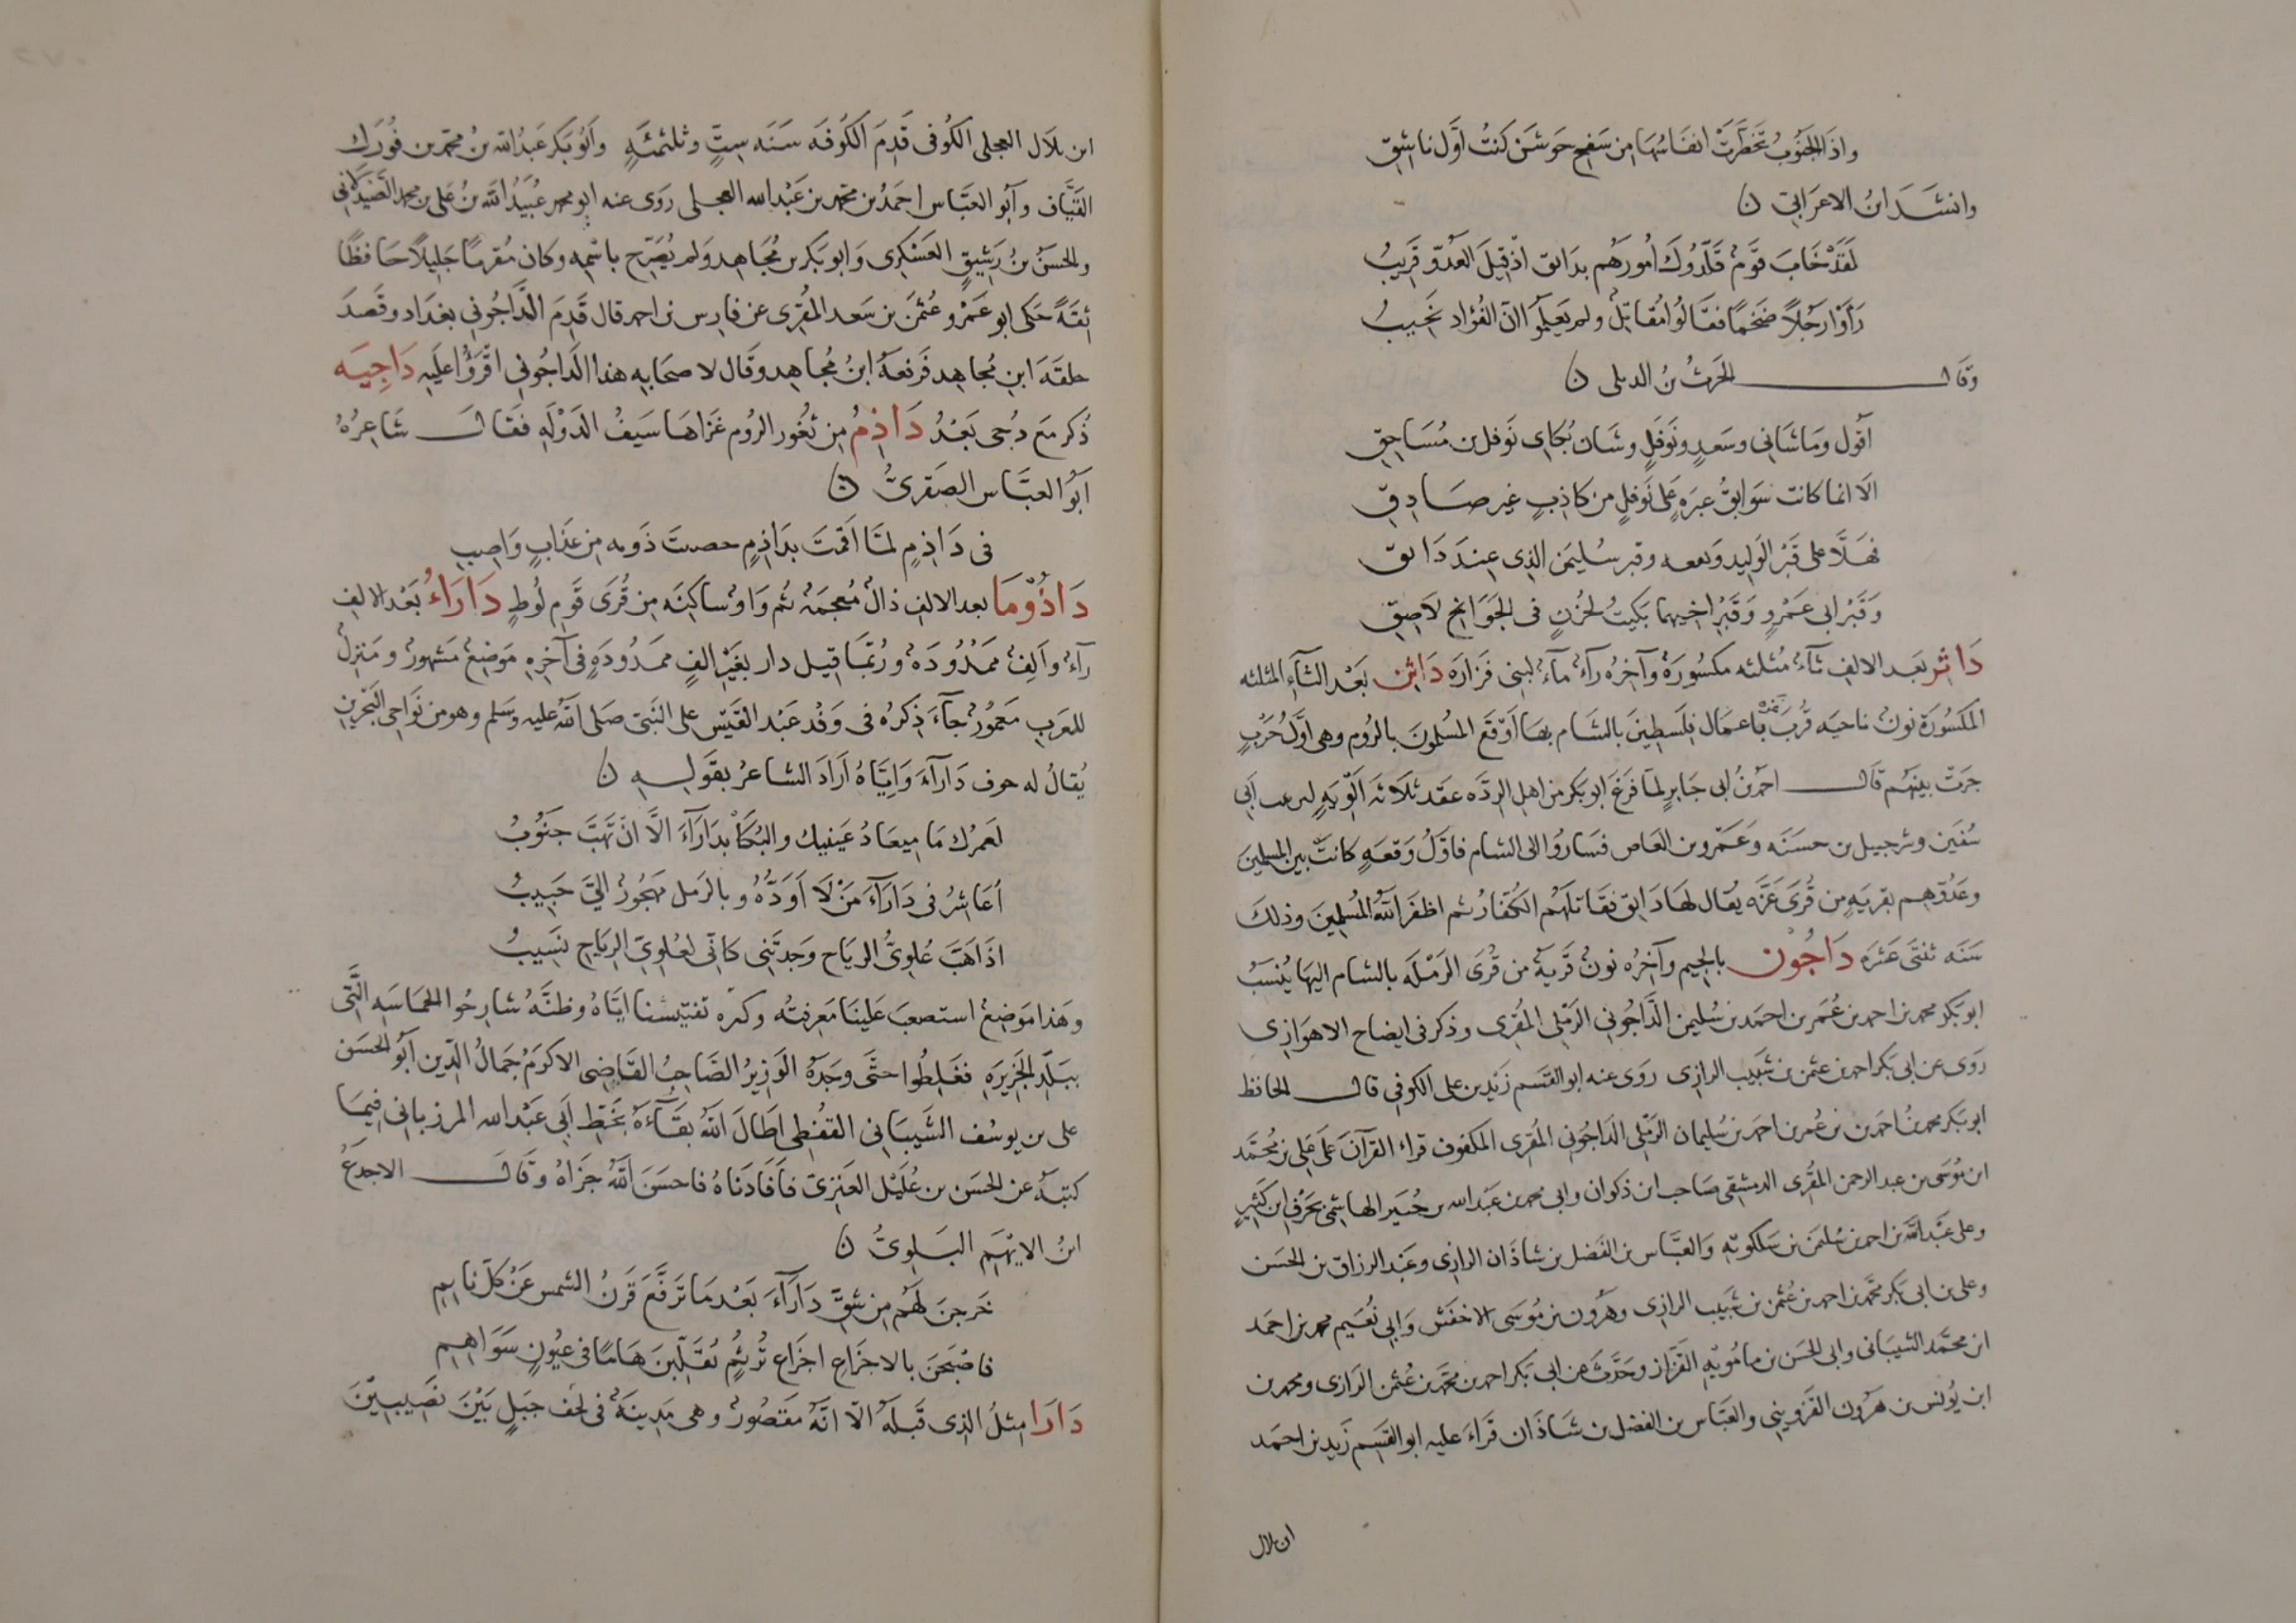 واذَا الجَنُوبُ تَخَطَّرَتْ انفَاسُهَا مِن سَفْحِ حَوشَن كَنتُ اَوَّل نَاشِقِ
وانشَدَ ابنُ الاعرَابِي ن
لَقَدْ خَابَ قَومٌ قَلَّدُوكَ اُمُورَهُم بدَابق اذْ قِيلَ العَدُوّ قَرِيبُ
رَاَوْا رَجُلاً ضَخمًا فقَالُوا مُقَاتِلٌ ولم يَعلَمُوا انّ الفُؤاد نَخِيبُ
وقال الحَرثُ بنُ الدىلى ن
اَقُول وَمَا شَانِى وسَعدٍ ونَوفَلٍ وشَان بُكَاى نَوفل بن مُسَاحِقِ
الَا انما كانت سَوَابقُ عَبرَةٍ عَلى نَوفَلٍ من كاذِبٍ غير صَادِقِ
فهَلَّا على قَبْرِ الوَلِيد وَىععه وقبر سُليمَن الذى عِندَ دَابق
وَقَبْرُ ابى عَمْرٍو وَقَبْرُ اخيهما بَكيتُ لحُزنٍ فى الجَوَانح لَاصِقِ
دَاثِر بَعد الالِف ثآءٌ مُثلثه مكسُورَةٌ وآخِرُه رآءٌ مآءٌ لبنى فَزَارَة دَاثِن بَعْد الثآءِ المثلثه
المكسُورَة نونٌ ناحيَه قُربَ غَزَّة باعمَال فِلَسطِينَ بالشَام بهَا اَوْقَع المُسْلِمُونَ بالرُومِ وهى اوّلُ حَرْبٍ
جَرَتْ بينَهُم قَالَ احمدُ بنُ ابى جَابِرٍ لمَّا فَرَغَ ابو بَكر من اهلِ الرِدَّه عقَد ثلَاثَه اَلْوِيَةٍ ليزيد بن اَبى
سُفيَن وشرحبيل بن حسَنَه وَعَمْرو بن العَاص فسَارُوا الى الشام فاوّلُ وقعَةٍ كانَتْ بين المسلمينَ
وعَدُوّهِم بقريَةٍ من قُرَى غَزَّه يُقال لهَا دَاثِن فقَاتلَهُم الكُفّارُ ثم اظفَر اللَّهُ المُسْلِمِينَ وذلكَ
سَنَه ثنتَى عَشَره دَاجُوْن بالجيم وآخِرُه نونٌ قَريَةٌ من قُرَى الرَمْلَه بالشام اليهَا يُنسَبُ
ابو بَكْر محمد بن احمد بن عُمَر بن احمَد بن سُليمن الدَّاجُونِى الرَمْلِى المُقرِى وذكر فى ايضاح الاهوَازِى
رَوَى عن ابى بَكر احمد بن عثمن بن شَبِيب الرازِى روَى عنه ابو القَسَم زَيد بن على الكوفى قال الحافظ
ابو بَكر محمد بنُ احمَد بن عُمر بن احمَد بن سُليمان الرَمْلِى الدَاجُونِى المُقرِى المكفوف قراء القرآنَ عَلَى عَلى بن مُحمَّد
ابن مُوسَى بن عبد الرحمن المُقرِى الدمشقى صَاحب ابن ذكوان وابى محمد بن عَبْد الله بن جُبَير الهاشمى بحَرْف ابن كَثِير
وعلى عَبْد اللَّه بن احمد بن سُليمَن بن سَلكويَه وَالعبَّاس بن الفَضل بن شَاذَان الرازِى وعَبد الرزاق بن الحَسَن
وعلى بن ابى بَكر محمَّد بن احمد بن عُثمن بن شَبِيب الرازِى وهَرُون بن مُوسَى الاخفَش وَابى نُعَيم محمد بن احمَد
ابن محمَّد الشيبَانى وابى الحَسَن بن مامُويَه القَزَاز وحَدَّث عَن ابى بَكر احمد بن محمَّد بن عُثمن الرَازى ومحمد بن
ابن يُونس بن هَرون القَزوِينِى والعبَّاس بن الفضل بن شَاذَان قَراءَ عليه ابو القَسِم زَيد بن احمَد
ابن بلال
ابن بلَال العِجلى الكُوفى قَدِمَ الكُوفَه سَنَه سِتٍّ وثلثمئةٍ وَاَبُو بَكر عَبْدُ اللّه بنُ محمّد بن فُورَك
القَبَّاف وآبُو العَبّاس احمَدُ بن محمّد بن عَبْد الله العِجلى رَوَى عنه ابو محمد عُبَيْدُ اللَّه بنُ عَلى بن محمد الصَّيدَلَانِى
والحَسَنُ بنُ رَشِيقٍ العَسْكرِى وَابو بَكر بن مُجَاهِد وَلم يُصَرّح باسْمِه وكان مُقرئًا جَليلًا حَافظًا
ثِقَةً حَكى ابو عَمْرو عُثمَن بن سَعد المُقرِى عن فارِس بن احمد قال قَدِمَ الدَّاجُونِى بغدَاد وقَصَدَ
حلقَة ابن مُجَاهِد فَرَفعَهُ ابنُ مُجَاهِد وقَال لاصحَابِهِ هذا الدَاجُونِى اقْرَؤُا عَليَه دَاجِيَه
ذُكِر مَع دُجى بَعْدُ دَاذِمُ مِن ثُغُور الرُوم غَزَاهَا سَيفُ الدَوْلَه فقَالَ شَاعِرُهُ
اَبُو العبَّاس الصَفرِىُّ ن
فى دَاذِمٍ لمّا اَقمتَ بدَاذِمٍ حصىتَ ذَوىه مِن عَذَابٍ وَاصِبِ
دَاذُوْمَا بعد الالفِ ذالٌ مُعجمَةٌ ثم وَاوٌ ساكِنَه مِن قُرَى قَوم لُوطٍ دَارَاءُ بَعْد الالفِ
رآءٌ وآلِفٌ ممدُودَهٌ ورُبّمَا قيل دار بغَيْر الفٍ ممدُودَةٍ فى آخِرِهِ مَوضِعٌ مَشهورٌ ومَنزِلٌ
للعَربِ مَعمُورٌ جآءَ ذِكرُهُ فى وَفْد عَبْد القَيس على النَبىّ صَلى اللّه عليه وسلم وهو من نَوَاحى البَحْرَينِ
يُقالُ له جوف دَارَآءَ وَاِيَّاهُ اَرَادَ الشاعرُ بقَولِهِ ن
لَعَمرُك مَا مِيعَادُ عَينيك والبُكَا بدَارَآءَ الَّا انْ تَهُبَّ جَنُوبُ
اُعَاشِرُ فى دَارَآءَ مَنْ لَا اَوَدُّهُ وبالرَمل مَهجُورٌ اِلىَّ حَبِيبُ
اذَا هَبَّ عُلوِىُّ الرِيَاح وَجدتَنى كانّى لعُلوِىّ الرِيَاحِ نَسِيبُ
وهَذا مَوضِعٌ استصعبَ عَلينَا مَعرِفتُه وكثره تفتيشنا ايّاهُ وظنَّهُ شارِحُوا الحمَاسَه الَّتى
ببَلَد الجَزِيرَةِ فغَلِطُوا حتَّى وجَدَهُ الوَزِيرُ الصَّاحِبُ القاضى الاكرَمُ جَمالُ الدّين اَبُو الحَسَن
على بن يوسُف الشَيبَانى القفْطى اطَالَ اللّهُ بقَآءَهُ بخَطِّ اَبى عَبْد الله المرزبانى فِيمَا
كتبَهُ عن الحَسَن بن عُلَيْل العَنَزِىّ فاَفَادَنَاهُ فاحسَنَ اللَّهُ جَزَاهُ وقَالَ الاجدَعُ
ابنُ الايهَمِ البَلوِىُّ ن
خَرجنَ لَهُم مِن شِقِّ دَارَآءَ بَعْد مَا تَرَفَّعَ قَرنُ الشمس عَنْ كلّ نايِمِ
فاصْبَحنَ بالاجزَاعِ اجزَاع تُرثُمٍ يُقَلّبنَ هَامًا فى عُيُونٍ سَوَاهِمِ
دَارَا مِثلُ الذِى قَبلَهُ الّا انّهُ مَقصُورٌ وهى مَدينَةٌ فى لَحف جبَلٍ بَيْنَ نَصِيبِيْنَ